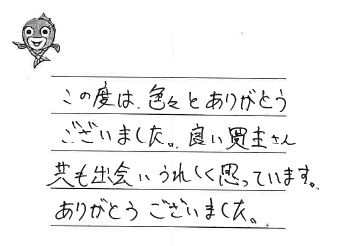 この度は、色々とありがとう
ございました。良い買主さん
共も出会いうれしく思っています。
ありがとうございました。